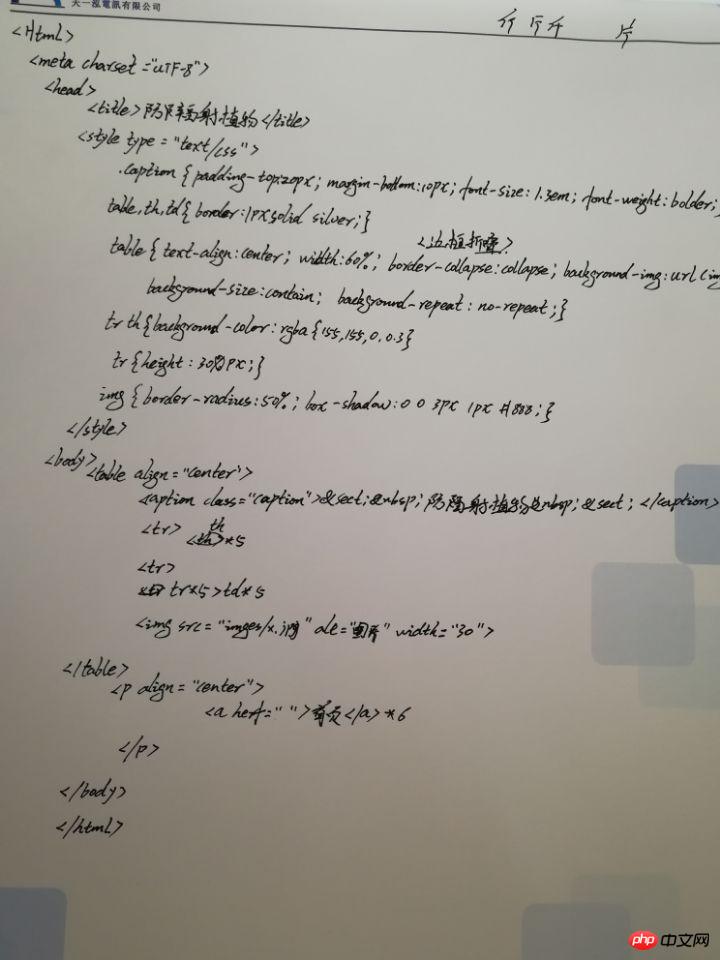 天一泓電訊有限公司
片
<Html>
<meta charset="UTF-8">
<head>
<title>防辐射植物</title>
<style type="text/css">
.caption { padding-top:20px; margin-bottom:10px; font-size:1.3em; font-weight:bolder;
table,th,td{ border:1px solid silver;}
<边框折叠>
table { text-align:center; width:60%; border-collapse:collapse; background-img:url(im
background-size:contain; background-repeat:no-repeat;}
tr th{background-color:rgba{155,155,0.0.3}
tr {height:30px;}
img { border-radius:50%; box-shadow:0 0 3px 1px #888;}
</style>
<body>
<table align="center">
<caption class="caption">&sect;&nbsp;防隔射植物&nbsp;&sect;</caption>
<tr> th
<th>*5
<tr>
tr*5>td*5
<img src="imges/x.jpg" alt="" width="30">
</table>
<p align="center">
<a herf=" ">首页</a>*6
</p>
</body>
</html>
php 中文网